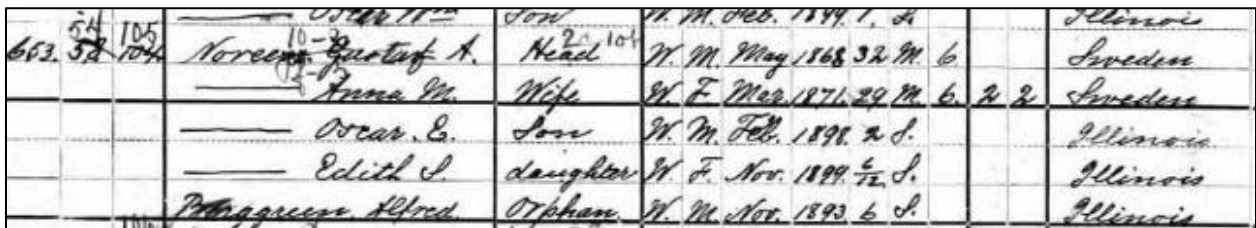 Oscar Wm Son W. M. Feb. 1899. 1, S. Illinois
54 105 10-2 2c 104
653. 58 104 Noreen, Gustaf A. Head W. M. May 1868 32 M 6 Sweden
—— Anna M. Wife W. F. Mar. 1871. 29 M. 6. 2 2 Sweden
—— Oscar. E. Son W. M. Feb. 1898. 2 S. Illinois
—— Edith S. daughter W. F. Nov. 1899. 6/12 S. Illinois
Alfred Orphan, W. M. Nov. 1893. 6 S. Illinois